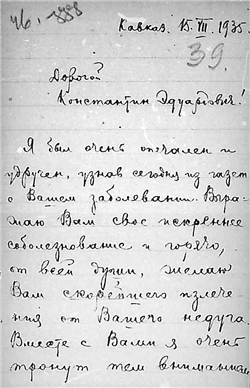 Кавказ. 15. VII. 1935.
39.
Дорогой
Константин Эдуардович!
Я был очень опечален и
удручен, узнав сегодня из газет
о Вашем заболевании. Выра-
жаю Вам свое искреннее
соболезнование и горячо,
от всей души, желаю
Вам скорейшего излече-
ния от Вашего недуга.
Вместе с Вами я очень
тронут тем вниманием